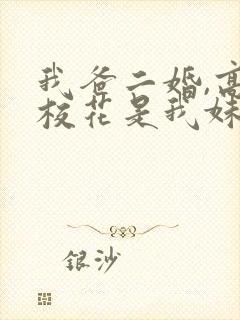 我爸二婚,高
校花是我妹
银沙